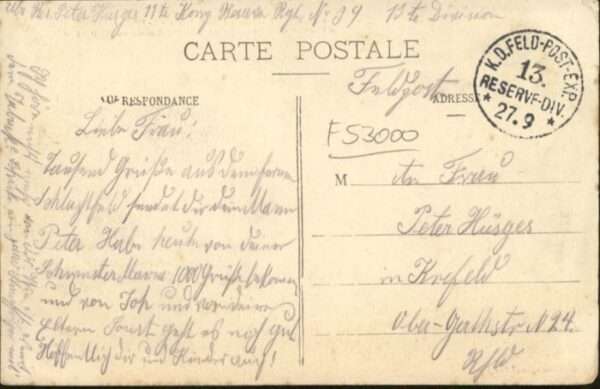 Peter Hüsges 11te Komp Reserve Rgt. No 39 13te Division
CARTE POSTALE
Feldpost
RESPONDANCE
ADRESSE
K.D.FELD-POST-EXP.
13.
RESERVE-DIV.
* 27.9 *
FS3000
Liebe Frau!
Tausend Grüße aus dem fernen
Schlachtfeld sendet dir dein Mann
Peter Habe heute von deiner
Schwester Maria 1000 Grüße bekomen
und von Jos und von deinen
Eltern Sonst geht es noch gut
Hoffentlich dir und Kinder auch!
M An Frau
Peter Hüsges
in Krefeld
Ober-Gathstr N 24.
Rhld